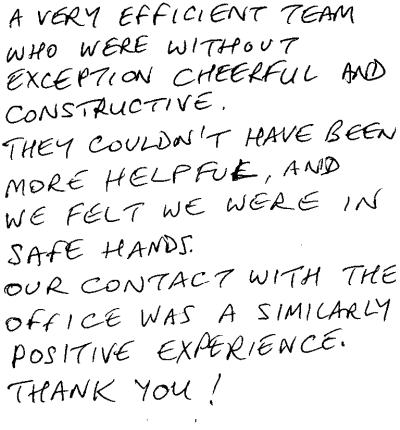 A VERY EFFICIENT TEAM
WHO WERE WITHOUT
EXCEPTION CHEERFUL AND
CONSTRUCTIVE.
THEY COULDN'T HAVE BEEN
MORE HELPFUL, AND
WE FELT WE WERE IN
SAFE HANDS.
OUR CONTACT WITH THE
OFFICE WAS A SIMILARLY
POSITIVE EXPERIENCE.
THANK YOU!